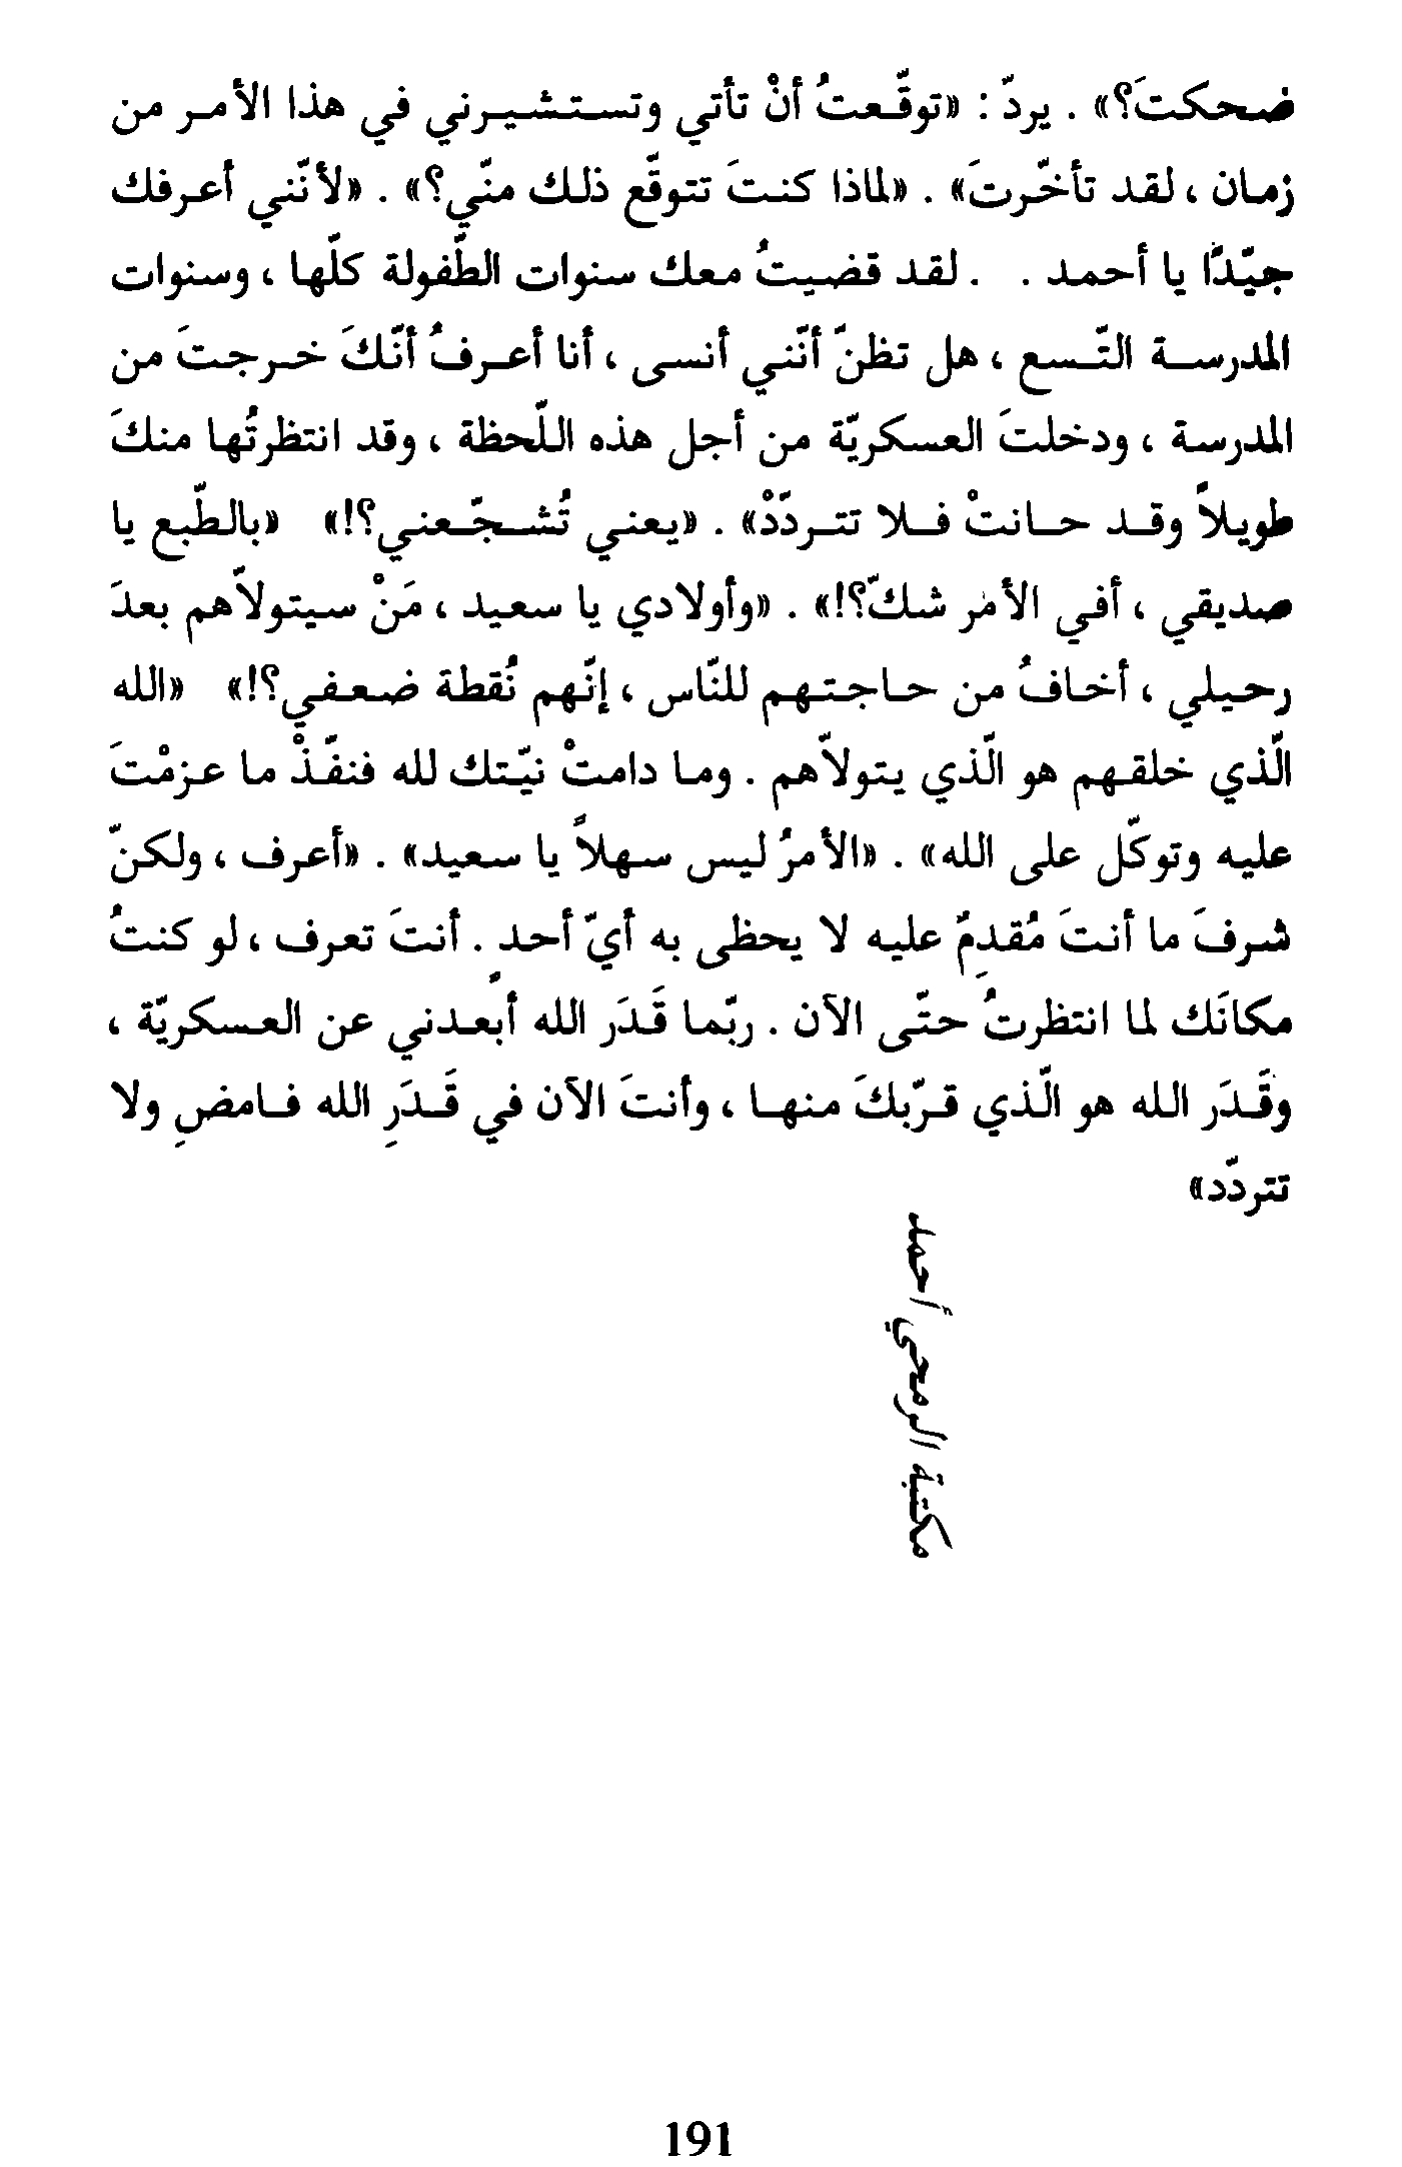 ضحكتَ؟» . يردّ : «توقّعتُ أنْ تأتي وتستشيرني في هذا الأمر من
زمان ، لقد تأخّرتَ» . «لماذا كنتَ تتوقّع ذلك منّي؟» . «لأنّني أعرفك
جيّدًا يا أحمد . . لقد قضيتُ معك سنوات الطّفولة كلّها ، وسنوات
المدرسة التّسع ، هل تظنّ أنّني أنسى ، أنا أعرفُ أنّكَ خرجتَ من
المدرسة ، ودخلتَ العسكريّة من أجل هذه اللّحظة ، وقد انتظرتُها منكَ
طويلاً وقد حانتْ فلا تتردّدْ» . «يعني تُشجّعني؟!» «بالطّبع يا
صديقي ، أفي الأمر شكّ؟!» . «وأولادي يا سعيد ، مَنْ سيتولاّهم بعدَ
رحيلي ، أخافُ من حاجتهم للنّاس ، إنّهم نُقطة ضعفي؟!» «الله
الّذي خلقهم هو الّذي يتولاّهم . وما دامتْ نيّتك لله فنفّذْ ما عزمْتَ
عليه وتوكّل على الله» . «الأمرُ ليس سهلاً يا سعيد» . «أعرف ، ولكنّ
شرفَ ما أنتَ مُقدِمٌ عليه لا يحظى به أيّ أحدٍ . أنتَ تعرف ، لو كنتُ
مكانَك لما انتظرتُ حتّى الآن . ربّما قَدَر الله أبعدني عن العسكريّة ،
وقَدَر الله هو الّذي قرّبكَ منها ، وأنتَ الآن في قَدَرِ الله فامضِ ولا
تتردّد»
مكتبة الرمحي أحمد
191